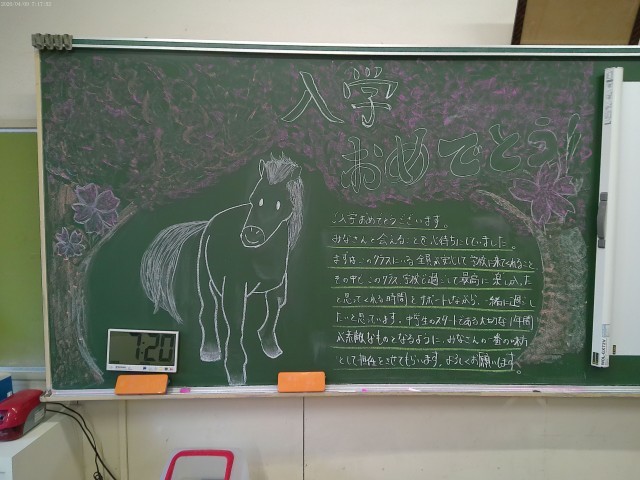 入学
おめでとう!
ご入学おめでとうございます。
みなさんと会えることを心待ちにしていました。
まずは、このクラスにいる全員が安心して学校に来てくれること
その中で、このクラス、学校で過ごして最高に楽しかった
と思ってくれる時間をサポートしながら、一緒に過ごし
たいと思っています。中学生のスタートである大切な1年間
が素敵なものとなるように、みなさんの一番の味方
として担任をさせてもらいます。よろしくお願いします。
7:20